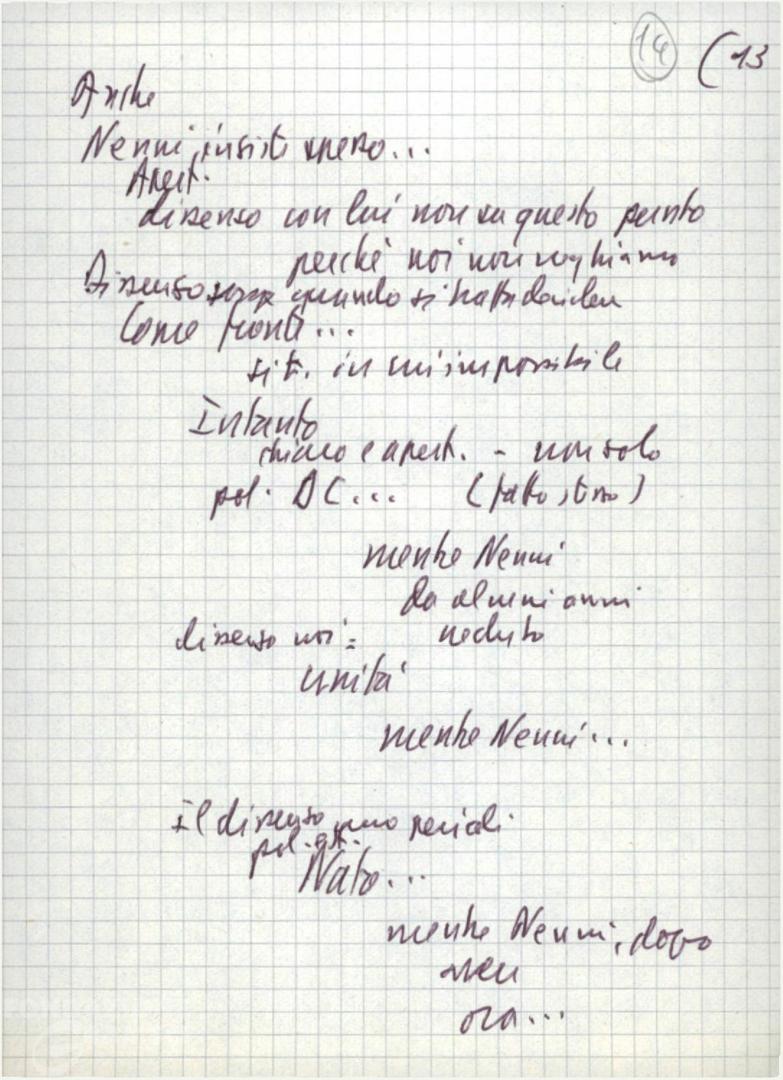 14 (13
Anche
Nenni, insiste spesso...
Apert.
dissenso con lui non su questo punto
perché noi non vogliamo
Dissenso quando si tratta
Come fronte...
sit. in cui impossibile
Intanto
chiaro e apert. - non solo
pol. DC... (fatto stesso)
mentre Nenni
da alcuni anni
dissenso noi = veduto
unità
mentre Nenni...
Il dissenso
pol. est.
Nato...
mentre Nenni, dopo
ora...